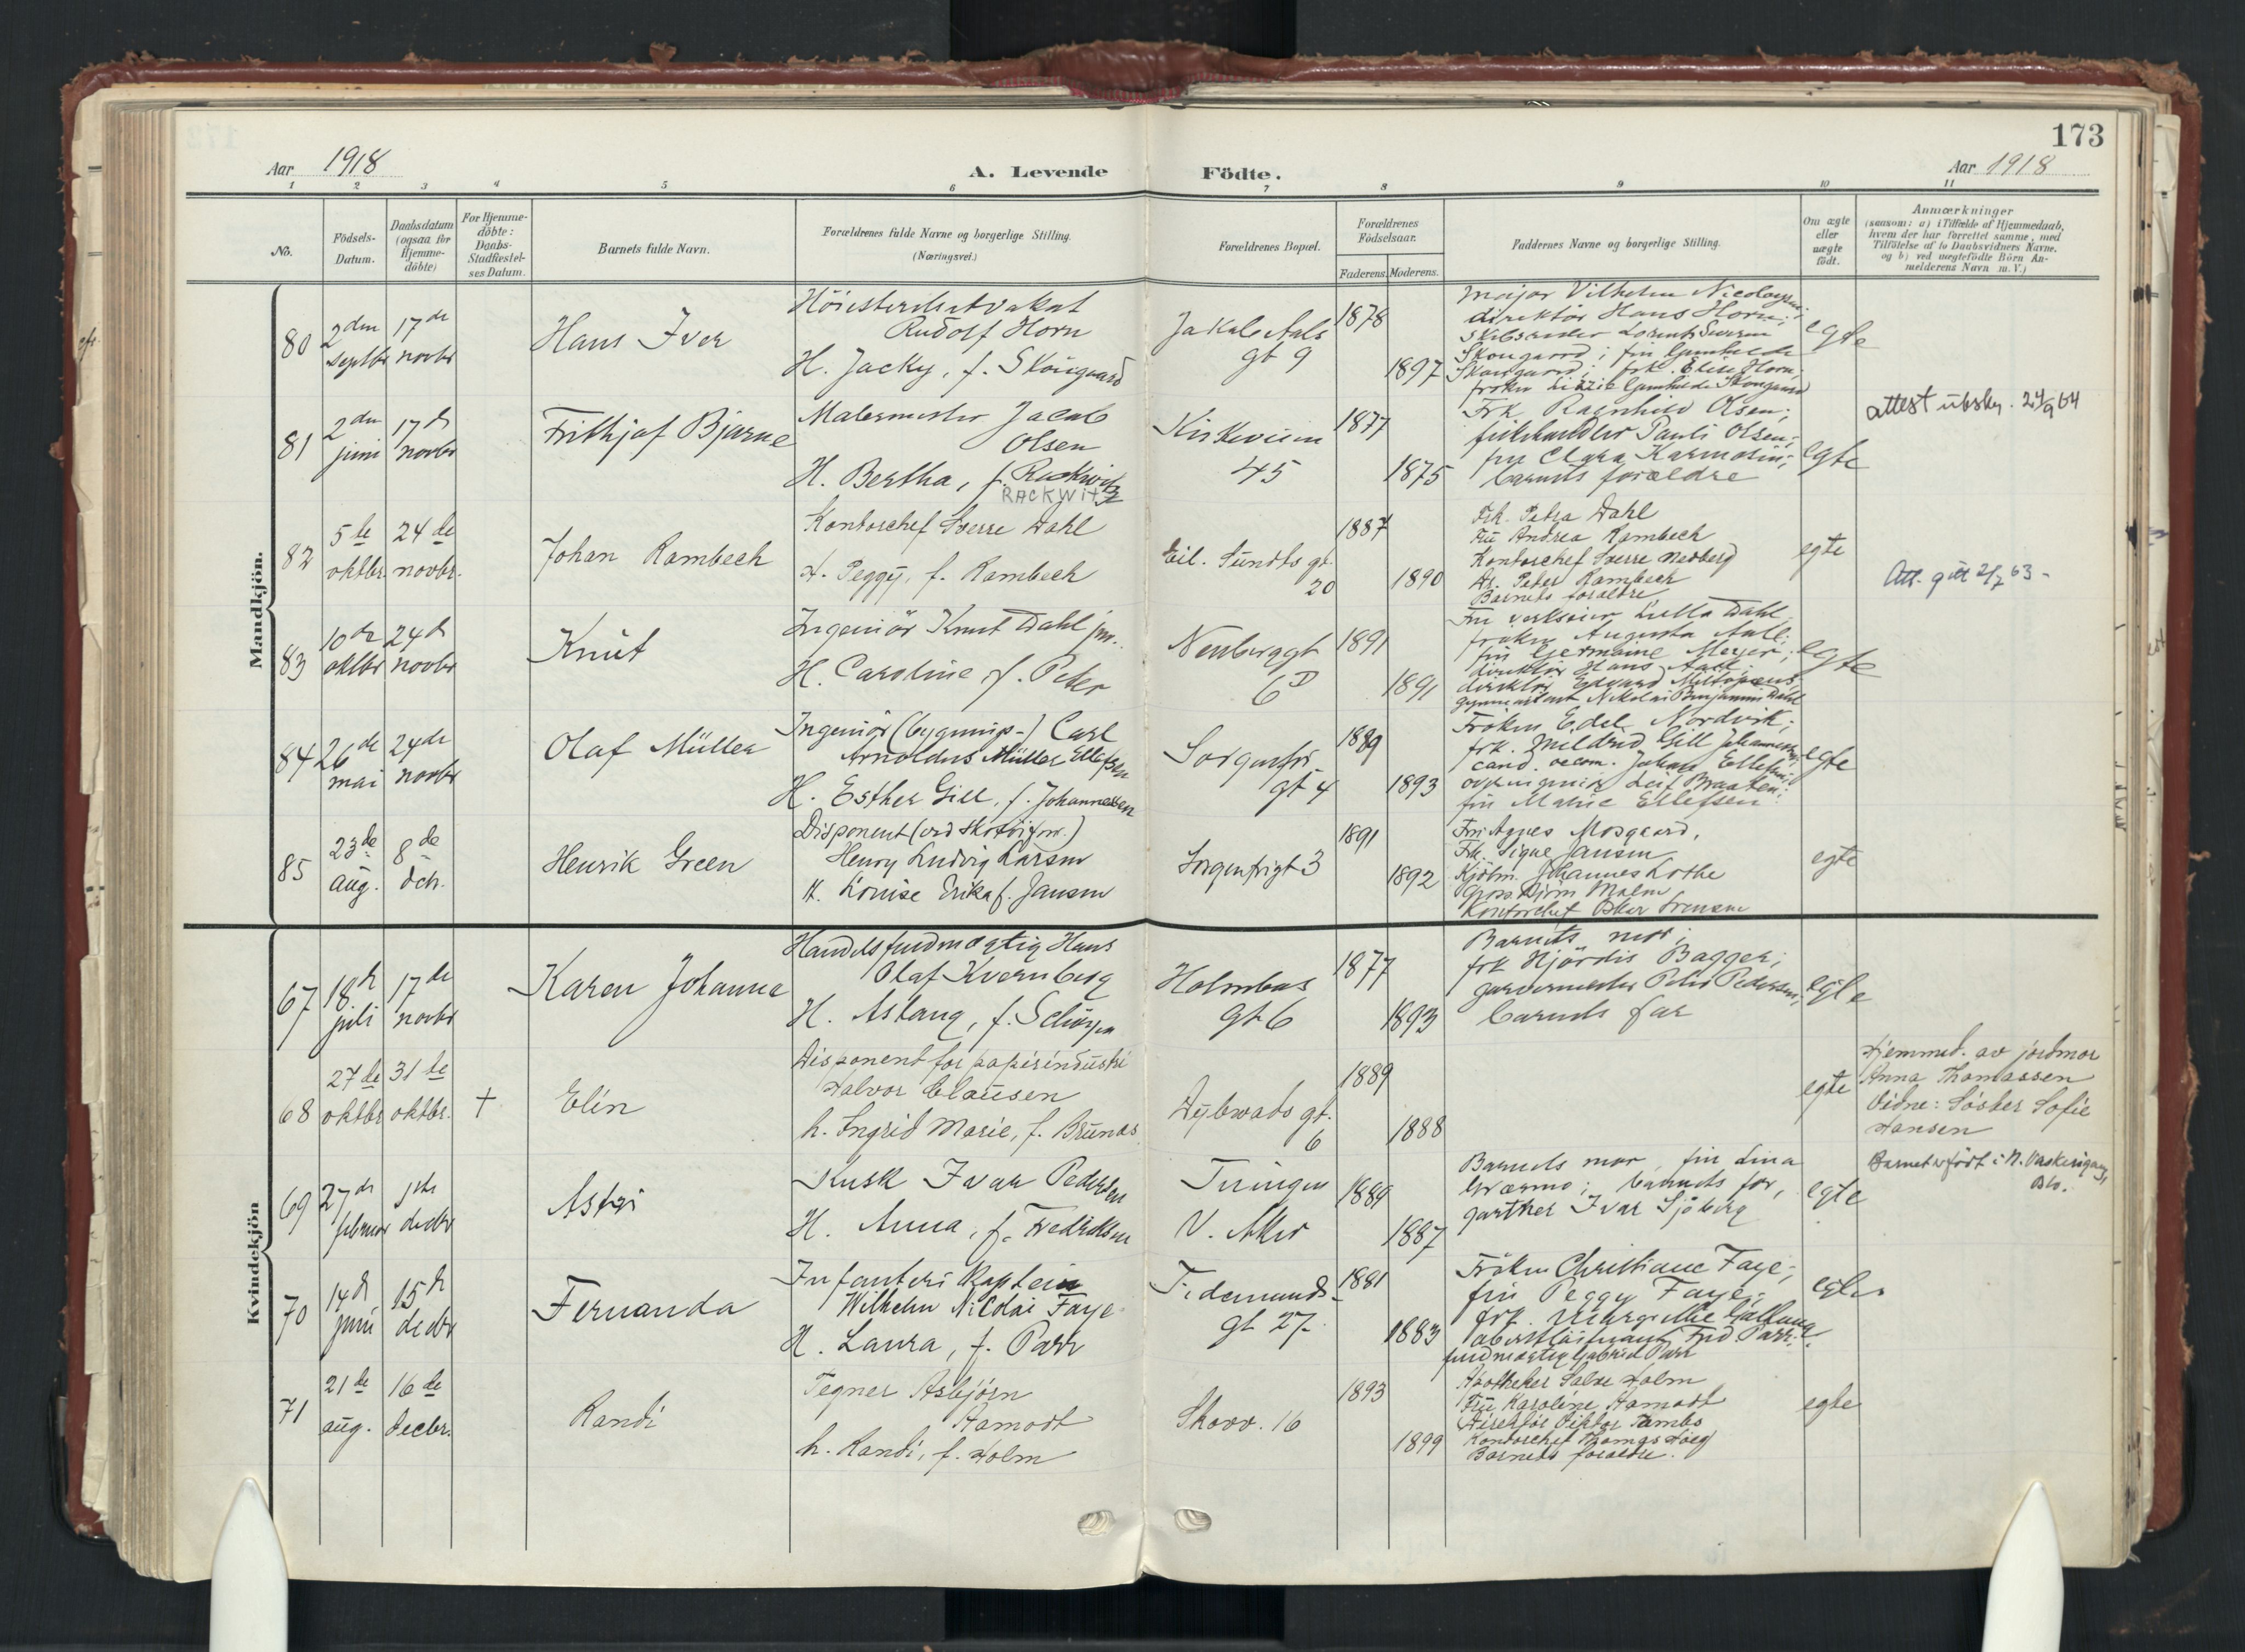 173
Aar 1918
A. Levende Födte.
Aar 1918
1 2 3 4 5 6 7 8 9 10 11
No.
Födsels-
Datum.
Daabsdatum
(ogsaa for
Hjemme-
döbte)
For Hjemme-
döbte:
Daabs-
Stadfæstel-
ses Datum.
Barnets fulde Navn.
Forældrenes fulde Navne og borgerlige Stilling.
(Næringsvei.)
Forældrenes Bopæl.
Forældrenes
Födselsaar.
Faderens. Moderens.
Faddernes Navne og borgerlige Stilling.
Om ægte
eller
uægte
födt.
Anmærkninger
(saasom: a) i Tilfælde af Hjemmedaab,
hvem der har forrettet samme, med
Tilföielse af to Daabsvidners Navne,
og b) ved uægtefödte Börn An-
melderens Navn m. V.)
Mandkjön.
80
2den septbr
17de novbr
Hans Iver
Höiesteretsadvokat
Rudolf Horn
H. Jacky, f. Skougaard
Jakob Aals
gt 9
1878
1897
Major Vilhelm Nicolaysen;
direktör Hans Horn;
skibsreder Lorents Severin
Skougaard; fru Gunhilde
Skougaard; frk. Elise Horn;
fröken Lizzie Gunhilde Skougaard
egte
81
2den juni
17d novbr
Frithjof Bjarne
Malermester Jacob
Olsen
H. Bertha, f. Rackwitz
RACKWITZ
Kirkeveien
45
1877
1875
Frk Ragnhild Olsen;
Pauli Olsen;
fru Clara
barnets forældre
egte
attest utsky. 24/9 64
82
5te oktbr
24de novbr.
Johan Rambech
Kontorchef Sverre Dahl
H. Peggy, f. Rambech
Eil. Sundts gt.
20
1887
1890
Frk. Petra Dahl
Fru Andrea Rambech
Kontorchef Sverre Nedberg
Dr. Peter Rambech
Barnets forældre
egte
Att. gitt 2/7 63 -
83
10de oktbr
24d novbr
Knut
Ingeniör Knut Dahl jnr.
H. Caroline, f. Peter
Neuberggt
6D
1891
1891
Fru verkseier Lulla Dahl
fröken Augusta Aall;
fru Germaine Meyer;
direktör Hans Aall;
direktör Edvard
Nikolai Benjamin Dahl
egte
84
26de mai
24de novbr
Olaf Müller
Ingeniör (bygnings-) Carl
Arnoldus Müller Ellefsen
H. Esther Gill, f. Johannessen
Sorgenfri-
gt 4
1889
1893
Fröken Edel Nordvik;
frk. Mildrid Gill Johannessen;
cand. oecon. Johan Ellefsen;
Leif Braaten;
fru Marie Ellefsen
egte
85
23de aug.
8de dcb.
Henrik Green
Disponent (ved skotöiforr.)
Henry Ludvig Larsen
H. Louise Erika f. Jansen
Sorgenfrigt 3
1891
1892
Fru Agnes Mosgaard,
Frk. Signe Jansen
Kjöbm. Johannes Lothe
Gross. Björn Malm
Kontorchef Oskar Svensen
egte
Kvindekjön
67
18d juli
17de novbr
Karen Johanna
Handelsfuldmægtig Hans
Olaf Kvernberg
H. Aslaug, f.
Holmboes
gt 6
1877
1893
Barnets mor;
frk Hjördis Bagger;
garvermester Peter Pedersen;
barnets far
egte
68
27de oktbr
31te oktbr.
+
Elin
Disponent for papirindustri
Halvor Clausen
h. Ingrid Marie, f. Brunæs
Dybwads gt.
6
1889
1888
egte
Hjemmed. av jordmor
Anna Thomassen
Vidne: Söster Sofie
Hansen
69
27de februar
1ste decbr
Astri
Kusk Ivar Pedersen
H. Anna, f. Fredriksen
V. Aker
1889
1887
Barnets mor, fru Lina
barnets far,
gartner Ivar Sjöberg
egte
Barnet er födt i N. Vaskerigang,
Blo.
70
14d juni
15d decbr
Fernanda
Infanteri kaptein
Wilhelm Nicolai Faye
H. Laura, f. Parr
Tidemands-
gt 27
1881
1883
Fröken Christiane Faye;
fru Peggy Faye;
frk.
oberstlöitnant Fred Parr;
fuldmægtig Gabriel Parr
egte
71
21de aug.
16de decbr.
Randi
Tegner Asbjörn
Aamodt
h. Randi, f. Holm
Skovv. 16
1893
1899
Apotheker Salve Holm
Fru Karoline Aamodt
Direktör Viktor Tambs
Kontorchef Thomas Höeg
Barnets forældre.
egte